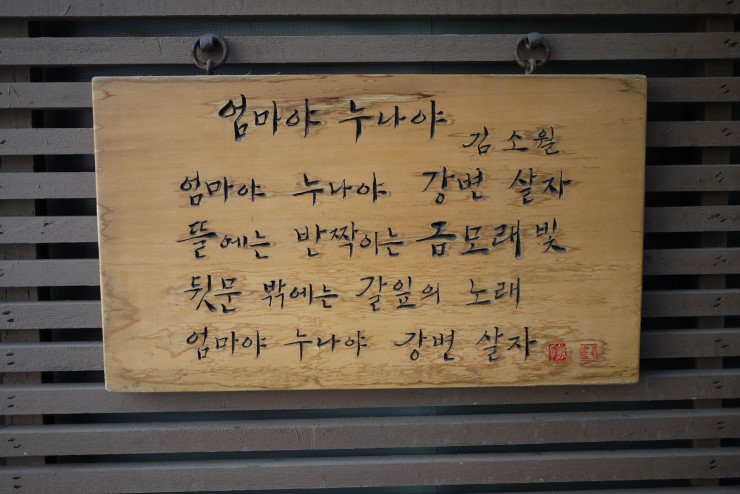 엄마야 누나야
김소월
엄마야 누나야 강변 살자
뜰에는 반짝이는 금모래빛
뒷문 밖에는 갈잎의 노래
엄마야 누나야 강변 살자